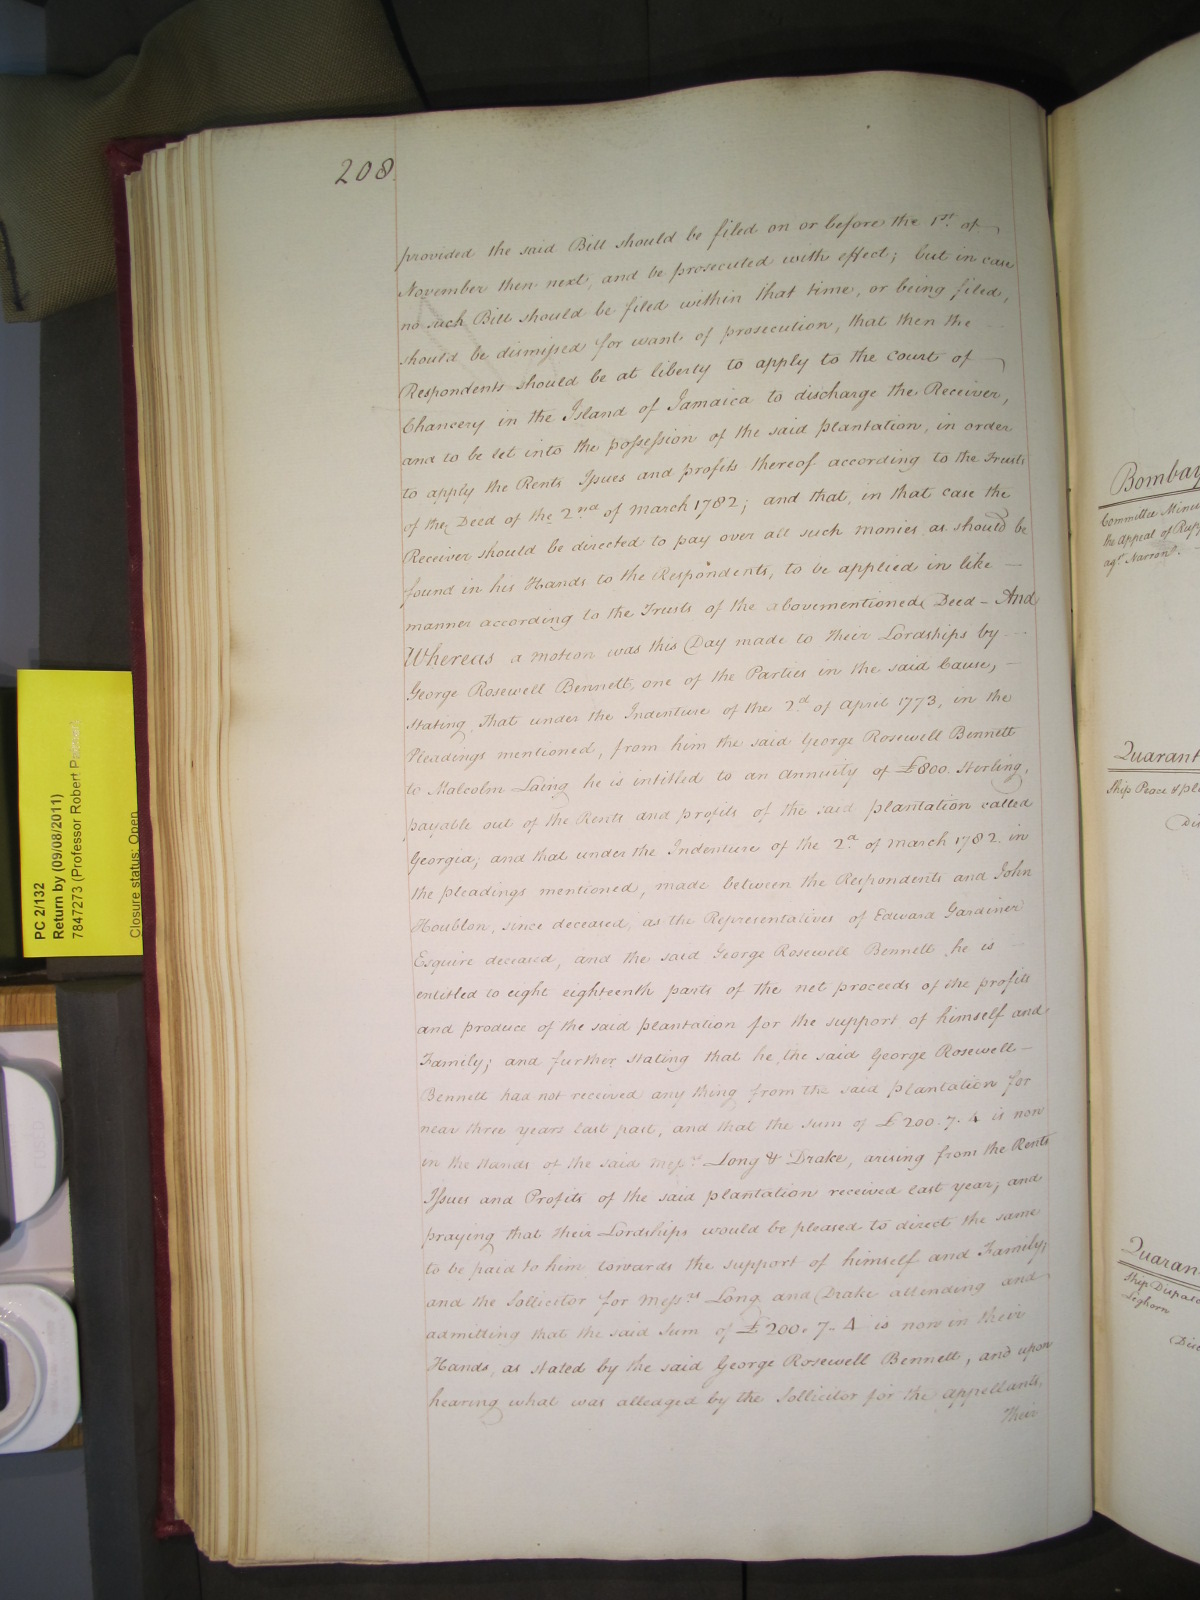 208.
provided the said Bill should be filed on or before the 1st. of
November then next, and be prosecuted with effect; but in case
no such Bill should be filed within that time, or being filed,
should be dismissed for want of prosecution, that then the
Respondents should be at liberty to apply to the Court of
Chancery in the Island of Jamaica to discharge the Receiver,
and to be let into the possession of the said plantation, in order
to apply the Rents Issues and profits thereof according to the Trusts
of the Deed of the 2nd of March 1782; and that, in that case the
Receiver should be directed to pay over all such monies as should be
found in his Hands to the Respondents, to be applied in like
manner according to the Trusts of the abovementioned Deed - And
Whereas a motion was this Day made to their Lordships by
George Rosewell Bennett, one of the Parties in the said Cause,
stating, That under the Indenture of the 2d. of April 1773, in the
Pleadings mentioned, from him the said George Rosewell Bennett
to Malcolm Laing he is intitled to an Annuity of £800. sterling,
payable out of the Rents and profits of the said plantation called
Georgia; and that under the Indenture of the 2d. of March 1782. in
the pleadings mentioned, made between the Respondents and John
Houblon, since deceased, as the Representatives of Edward Gardiner
Esquire deceased, and the said George Rosewell Bennett, he is
entitled to eight eighteenth parts of the net proceeds of the profits
and produce of the said plantation for the support of himself and
Family; and further stating that he, the said George Rosewell
Bennett had not received any thing from the said plantation for
near three years last past, and that the sum of £200. 7. 4 is now
in the Hands of the said Messrs. Long & Drake, arising from the Rents
Issues and Profits of the said plantation received last year; and
praying that their Lordships would be pleased to direct the same
to be paid to him towards the support of himself and Family;
and the Sollicitor for Messrs. Long and Drake attending and
admitting that the said Sum of £200. 7 - 4 is now in their
Hands, as stated by the said George Rosewell Bennett, and upon
hearing what was alledged by the Sollicitor for the appellants,
Their
PC 2/132
Return by (09/08/2011)
7847273 (Professor Robert
Closure status: Open
Bombay
Committee
the Appeal of
agt. Narron
Ship Peace
Ship
Leghorn